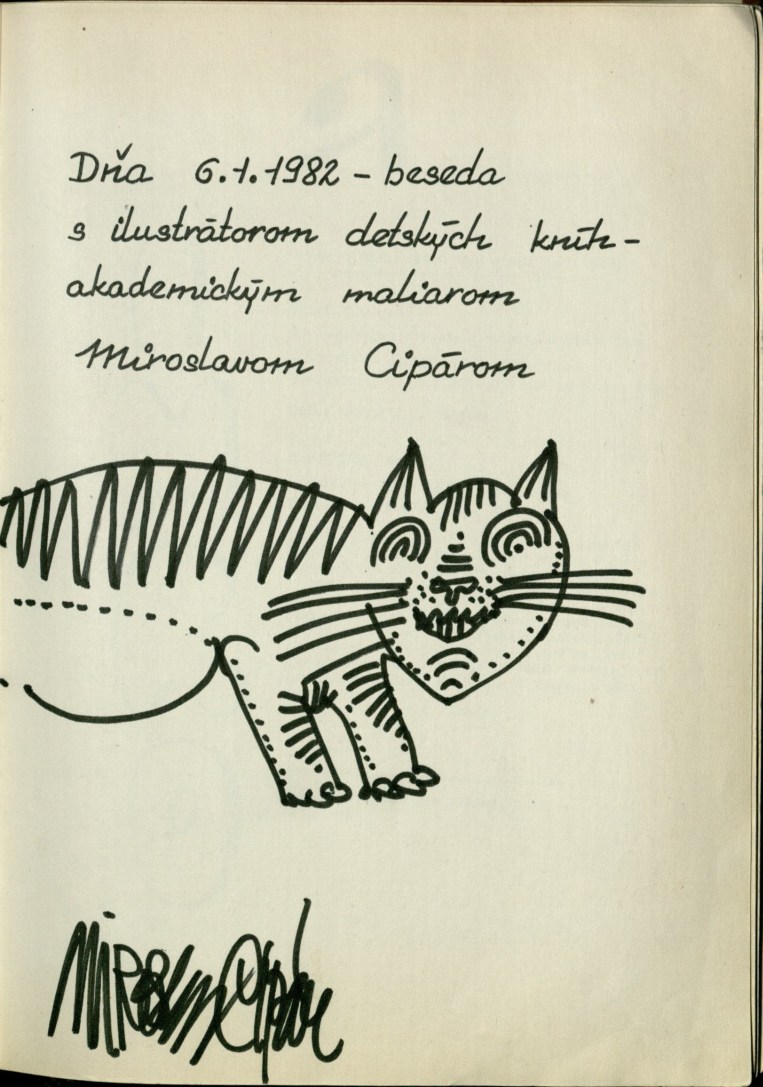 Dňa 6.1.1982 - beseda
s ilustrátorom detských kníh -
akademickým maliarom
Miroslavom Cipárom
Miroslav Cipár